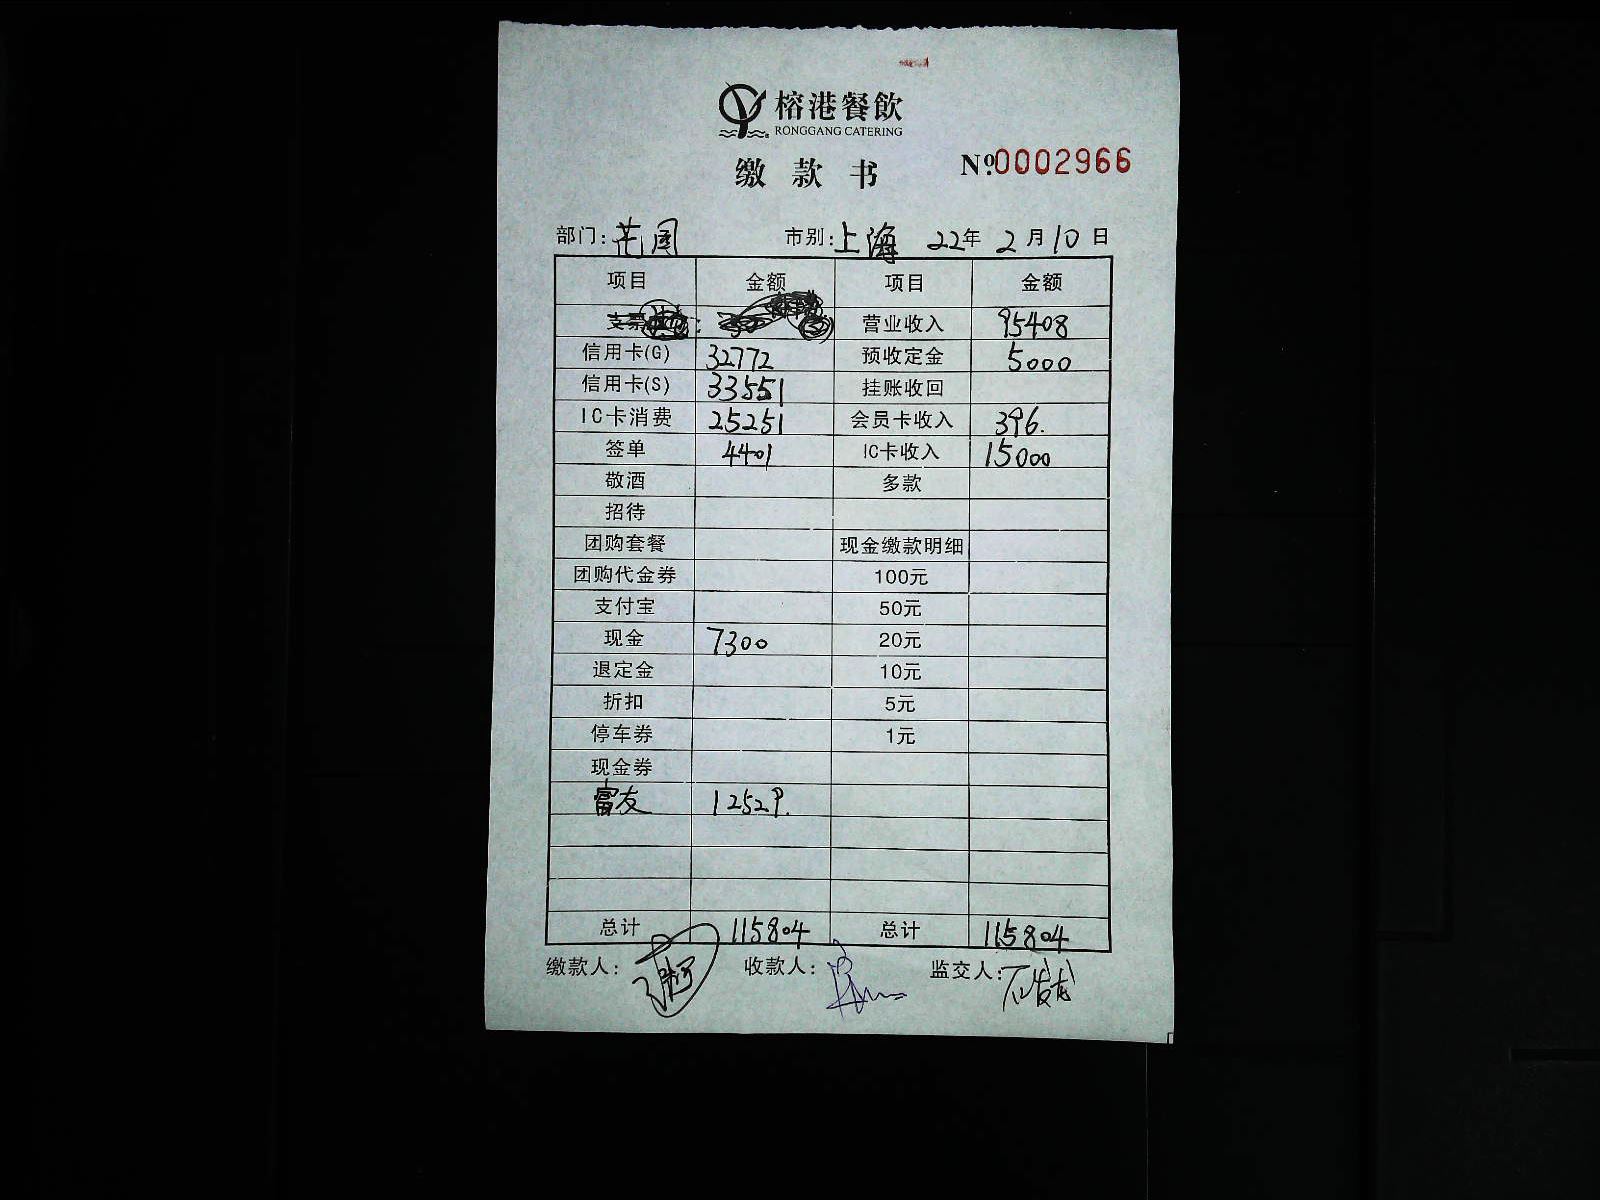 榕港餐飲
RONGGANG CATERING
缴款书 Nº0002966
部门: 花园 市别: 上海 22年 2月10日
项目 金额 项目 金额
营业收入 95408
信用卡(G) 32772 预收定金 5000
信用卡(S) 33551 挂账收回
IC卡消费 25251 会员卡收入 396.
签单 4401 IC卡收入 15000
敬酒 多款
招待
团购套餐 现金缴款明细
团购代金券 100元
支付宝 50元
现金 7300 20元
退定金 10元
折扣 5元
停车券 1元
现金券
富友 12529.
总计 115804 总计 115804
缴款人: 收款人: 监交人: